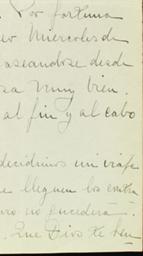 . Por fortuna
Miercoles de
aseandose desde
muy bien.
al fin y al cabo
decidimos un viaje
lleguen los
no sucederá.
. Que Dios te ben